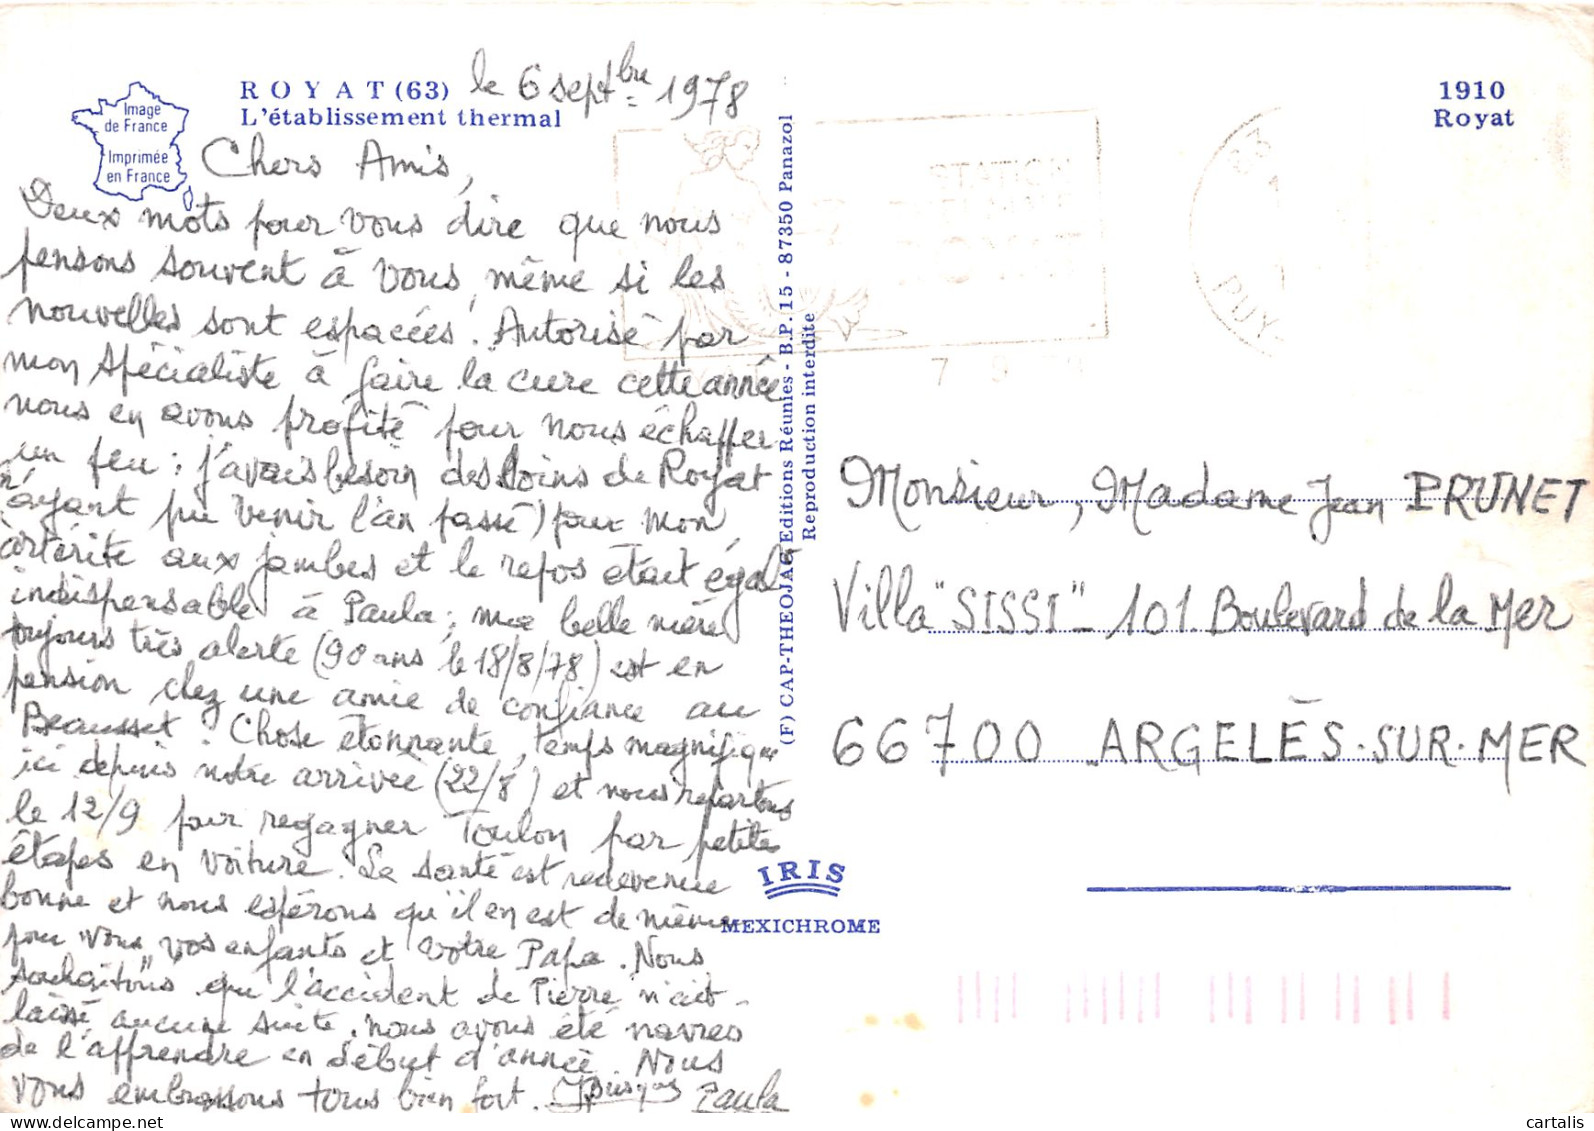 ROYAT (63)
L'établissement thermal
Image
de France
Imprimée
en France
le 6 septbre 1978
Chers Amis,
Deux mots pour vous dire que nous
pensons souvent à vous, même si les
nouvelles sont espacées. Autorisé par
mon spécialiste à faire la cure cette année
nous en avons profité pour nous échapper
un peu : j'avais besoin des soins de Royat
(n'ayant pu venir l'an passé) pour mon
artérite aux jambes et le repos était égal
indispensable à Paula ; ma belle mère
toujours très alerte (90 ans le 18/8/78) est en
pension chez une amie de confiance au
Beausset. Chose étonnante, temps magnifique
ici depuis notre arrivée (22/8) et nous repartons
le 12/9 pour regagner Toulon par petites
étapes en voiture. La santé est redevenue
bonne et nous espérons qu'il en est de même
pour vous, vos enfants et votre Papa. Nous
souhaitons que l'accident de Pierre n'ait
laissé aucune suite, nous avons été navrés
de l'apprendre en début d'année. Nous
vous embrassons tous bien fort. Paula
(F) CAP-THEOJAC Editions Réunies - B.P. 15 - 87350 Panazol
Reproduction interdite
IRIS
MEXICHROME
STATION
7 9
63
PUY
1910
Royat
Monsieur, Madame Jean PRUNET
Villa "SISSI" - 101 Boulevard de la Mer
66700 ARGELÈS-SUR-MER
delcampe.net
cartalis